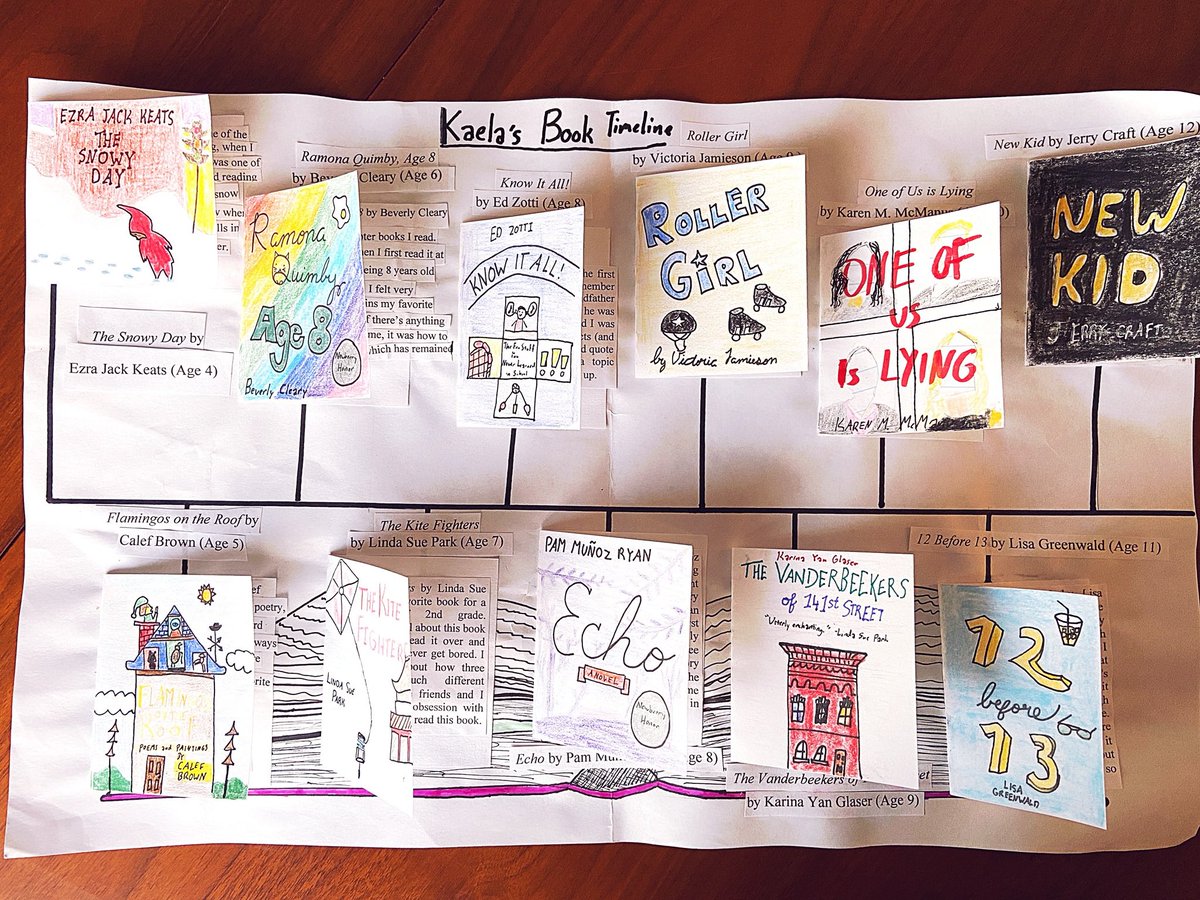 Kaela's Book Timeline
EZRA JACK KEATS
THE
SNOWY
DAY
of the
, when I
was one of
reading
snow
when
in
The Snowy Day by
Ezra Jack Keats (Age 4)
Ramona Quimby, Age 8
by Cleary (Age 6)
Ramona
Quimby,
Age 8
Newberry
Honor
Beverly Cleary
8 by Beverly Cleary
books I read.
when I first read it at
being 8 years old
I felt very
my favorite
if there's anything
me, it was how to
which has remained
Know It All!
by Ed Zotti (Age 8)
ED ZOTTI
KNOW IT ALL!
The Fun Stuff
You Never Learned
in School
!!!
the first
remember
he was
and I was
(and
quote
a topic
up.
Roller Girl
by Victoria Jamieson
ROLLER
GIRL
by Victoria Jamieson
One of Us is Lying
by Karen M. McManus
ONE OF
US
IS LYING
KAREN M.
New Kid by Jerry Craft (Age 12)
NEW
KID
JERRY CRAFT
Flamingos on the Roof by
Calef Brown (Age 5)
FLAMINGOS
ROOF
POEMS and PAINTINGS
By
CALEF
BROWN
poetry,
The Kite Fighters
by Linda Sue Park (Age 7)
THE KITE
FIGHTERS
LINDA SUE
PARK
by Linda Sue
favorite book for a
2nd grade.
about this book
read it over and
never get bored. I
about how three
such different
friends and I
obsession with
read this book.
PAM MUÑOZ RYAN
Echo
A NOVEL
Newberry
Honor
Echo by Pam 8)
Karina Yan Glaser
THE VANDERBEEKERS
OF 141ST STREET
"Utterly enchanting." -Linda Sue Park
The Vanderbeekers
by Karina Yan Glaser (Age 9)
12 Before 13 by Lisa Greenwald (Age 11)
12
before
13
LISA
GREENWALD